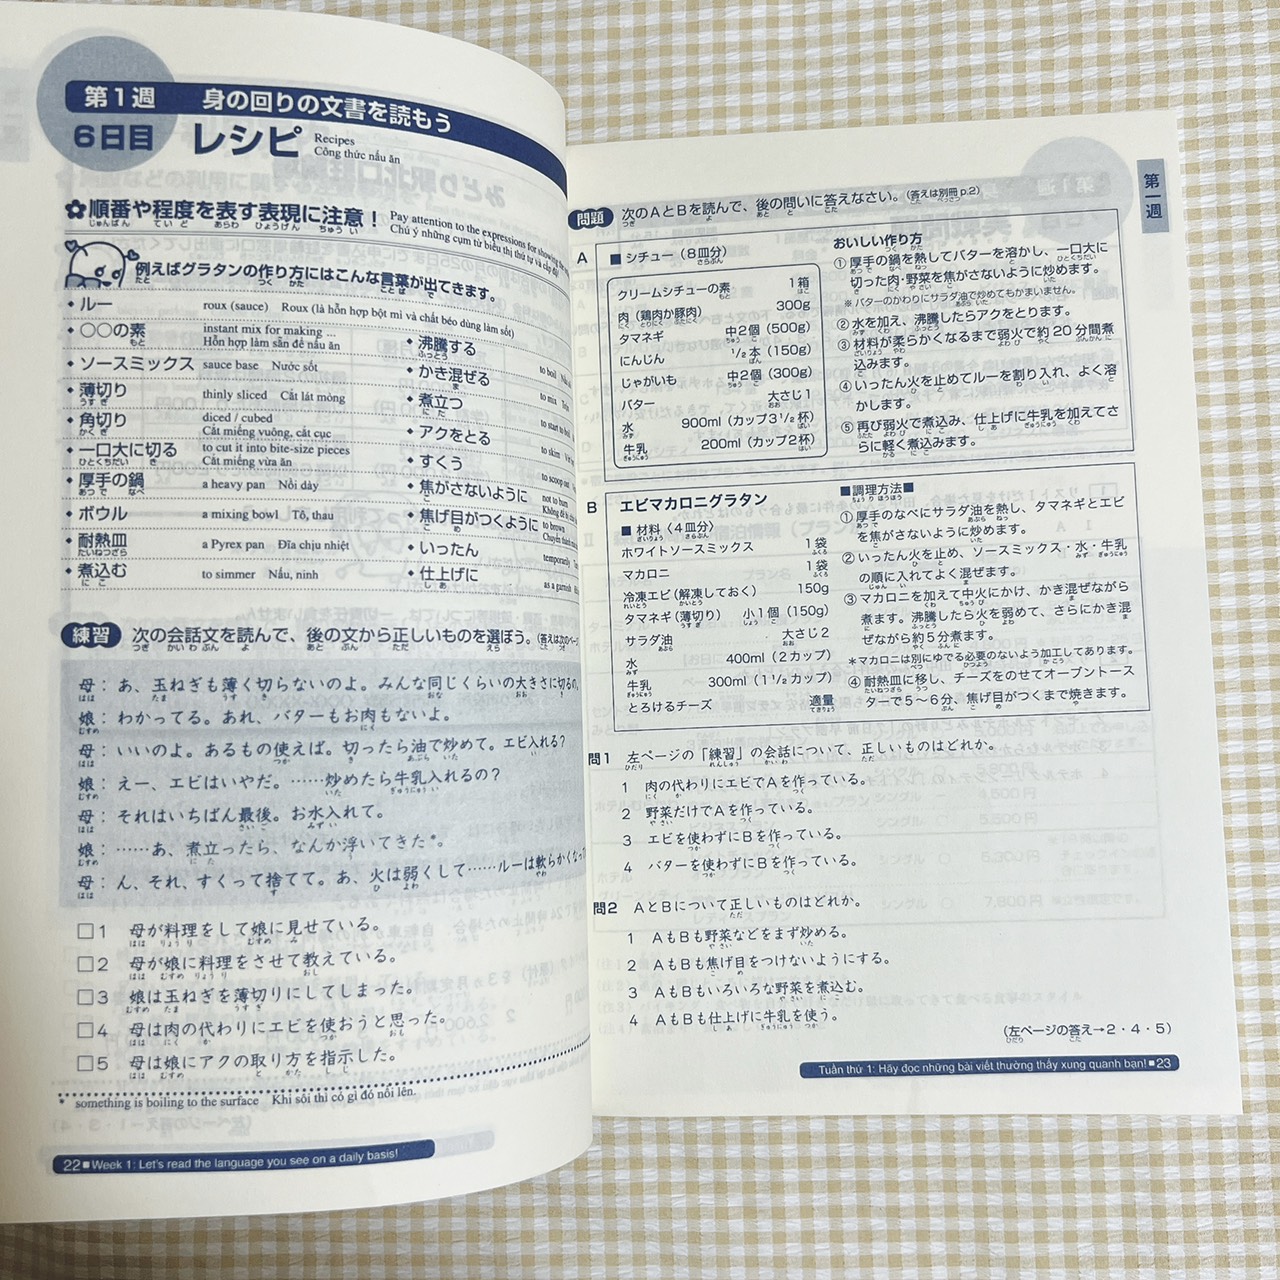 第1週 身の回りの文書を読もう
6日目 レシピ Recipes
Công thức nấu ăn
順番や程度を表す表現に注意！ Pay attention to the expressions for showing the
Chú ý những cụm từ biểu thị thứ tự và cấp độ
例えばグラタンの作り方にはこんな言葉が出てきます。
ルー roux (sauce) Roux (là hỗn hợp bột mì và chất béo dùng làm sốt)
○○の素 instant mix for making ...
Hỗn hợp làm sẵn để nấu ăn
ソースミックス sauce base Nước sốt
薄切り thinly sliced Cắt lát mỏng
角切り diced / cubed
Cắt miếng vuông, cắt cục
一口大に切る to cut it into bite-size pieces
Cắt miếng vừa ăn
厚手の鍋 a heavy pan Nồi dày
ボウル a mixing bowl Tô, thau
耐熱皿 a Pyrex pan Đĩa chịu nhiệt
煮込む to simmer Nấu, ninh
沸騰する to boil
かき混ぜる to mix
煮立つ to start to boil
アクをとる to skim
すくう to scoop out
焦がさないように not to burn
焦げ目がつくように to brown
いったん temporarily
仕上げに as a garnish
練習 次の会話文を読んで、後の文から正しいものを選ぼう。（答えは次のページ
母：あ、玉ねぎも薄く切らないのよ。みんな同じくらいの大きさに切るの。
娘：わかってる。あれ、バターもお肉もないよ。
母：いいのよ。あるもの使えば。切ったら油で炒めて。エビ入れる？
娘：えー、エビはいやだ。……炒めたら牛乳入れるの？
母：それはいちばん最後。お水入れて。
娘：……あ、煮立ったら、なんか浮いてきた*。
母：ん、それ、すくって捨てて。あ、火は弱くして……ルーは軟らかくなって
□1 母が料理をして娘に見せている。
□2 母が娘に料理をさせて教えている。
□3 娘は玉ねぎを薄切りにしてしまった。
□4 母は肉の代わりにエビを使おうと思った。
□5 母は娘にアクの取り方を指示した。
* something is boiling to the surface Khi sôi thì có gì đó nổi lên.
22 ■ Week 1: Let's read the language you see on a daily basis!
第一週
問題 次のAとBを読んで、後の問いに答えなさい。（答えは別冊p.2）
A ■シチュー（8皿分）
クリームシチューの素 1箱
肉（鶏肉か豚肉） 300g
タマネギ 中2個（500g）
にんじん 1/2本（150g）
じゃがいも 中2個（300g）
バター 大さじ1
水 900ml（カップ3 1/2杯）
牛乳 200ml（カップ2杯）
おいしい作り方
①厚手の鍋を熱してバターを溶かし、一口大に
切った肉・野菜を焦がさないように炒めます。
※バターのかわりにサラダ油で炒めてもかまいません。
②水を加え、沸騰したらアクをとります。
③材料が柔らかくなるまで弱火で約20分間煮
込みます。
④いったん火を止めてルーを割り入れ、よく溶
かします。
⑤再び弱火で煮込み、仕上げに牛乳を加えてさ
らに軽く煮込みます。
B エビマカロニグラタン
■材料（4皿分）
ホワイトソースミックス 1袋
マカロニ 1袋
冷凍エビ（解凍しておく） 150g
タマネギ（薄切り） 小1個（150g）
サラダ油 大さじ2
水 400ml（2カップ）
牛乳 300ml（1 1/2カップ）
とろけるチーズ 適量
■調理方法■
①厚手のなべにサラダ油を熱し、タマネギとエビ
を焦がさないように炒めます。
②いったん火を止め、ソースミックス・水・牛乳
の順に入れてよく混ぜます。
③マカロニを加えて中火にかけ、かき混ぜながら
煮ます。沸騰したら火を弱めて、さらにかき混
ぜながら約5分煮ます。
*マカロニは別にゆでる必要のないよう加工してあります。
④耐熱皿に移し、チーズをのせてオーブントース
ターで5～6分、焦げ目がつくまで焼きます。
問1 左ページの「練習」の会話について、正しいものはどれか。
1 肉の代わりにエビでAを作っている。
2 野菜だけでAを作っている。
3 エビを使わずにBを作っている。
4 バターを使わずにBを作っている。
問2 AとBについて正しいものはどれか。
1 AもBも野菜などをまず炒める。
2 AもBも焦げ目をつけないようにする。
3 AもBもいろいろな野菜を煮込む。
4 AもBも仕上げに牛乳を使う。
（左ページの答え→2・4・5）
Tuần thứ 1: Hãy đọc những bài viết thường thấy xung quanh bạn! ■ 23